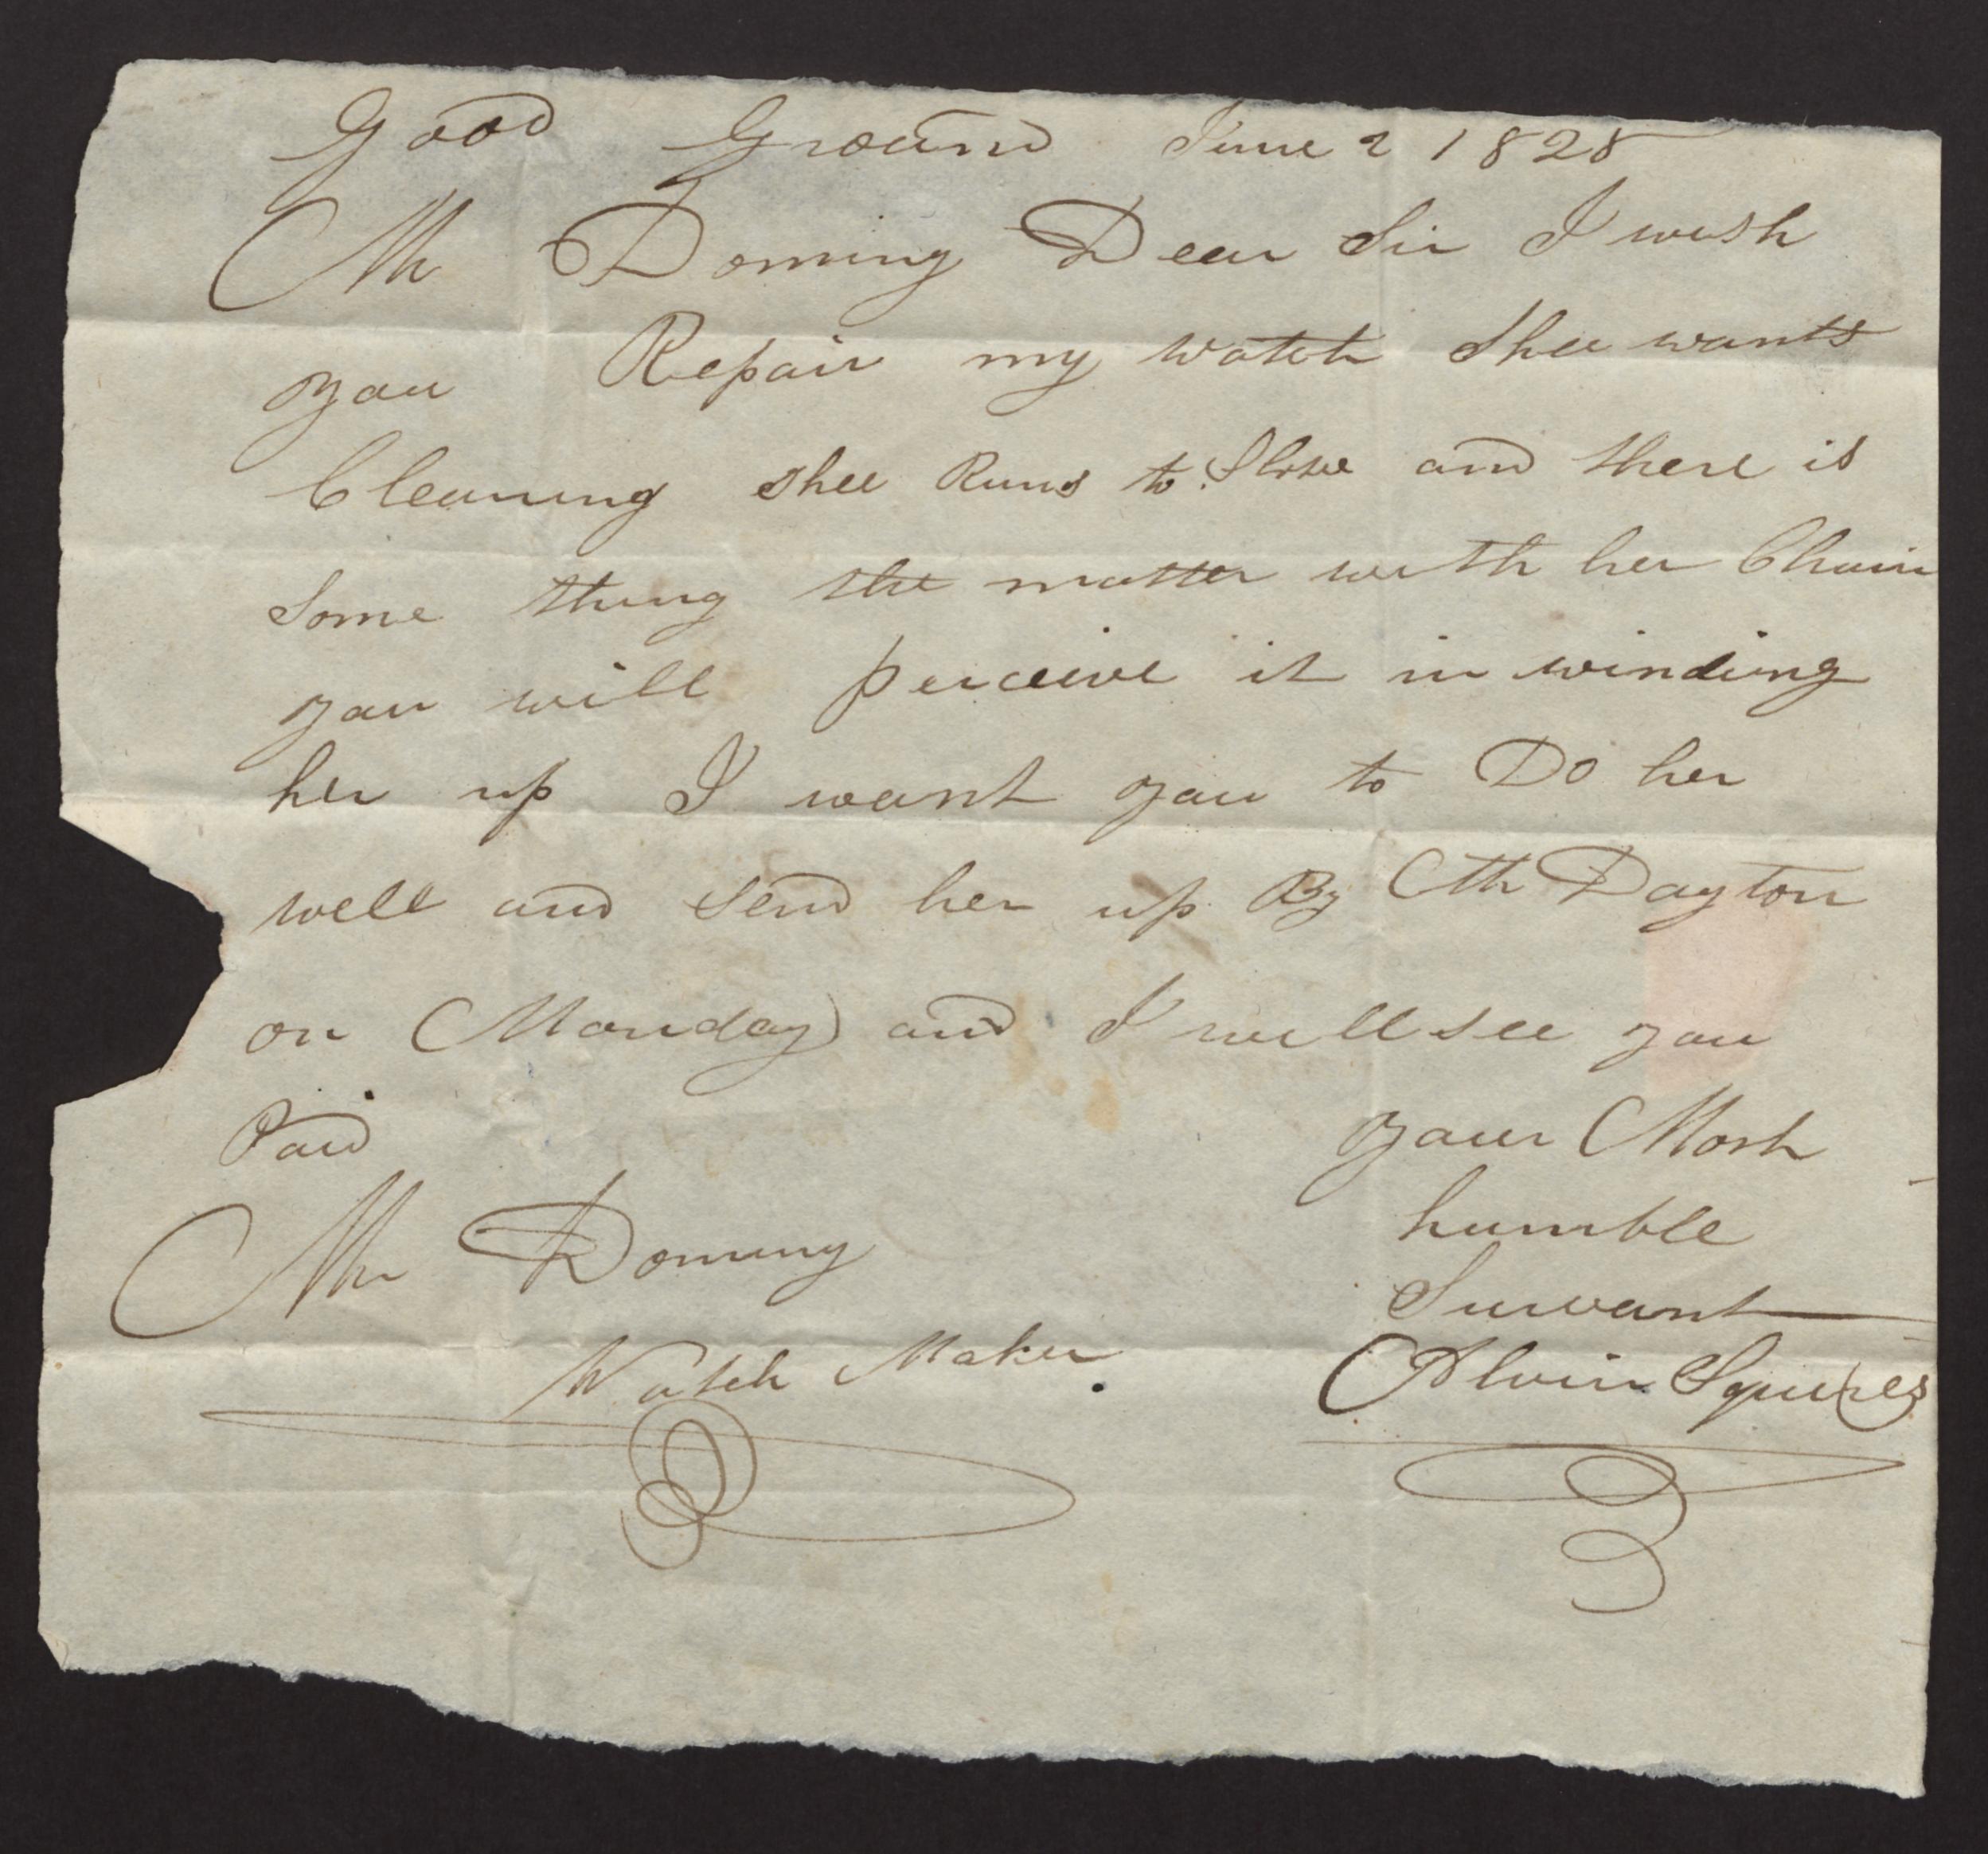 Good Ground June 2 1828
Mr Doming Dear Sir I wish
you Repair my watch Shee wants
Cleaning shee Runs to Slow and there is
Some thing the matter with her Chain
you will perceive it in winding
her up I want you to Do her
well and send her up By Mr Dayton
on Monday and I will see you
Paid
your Most
humble
Survant
Alvin Squires
Mr Dominy
Watch Maker